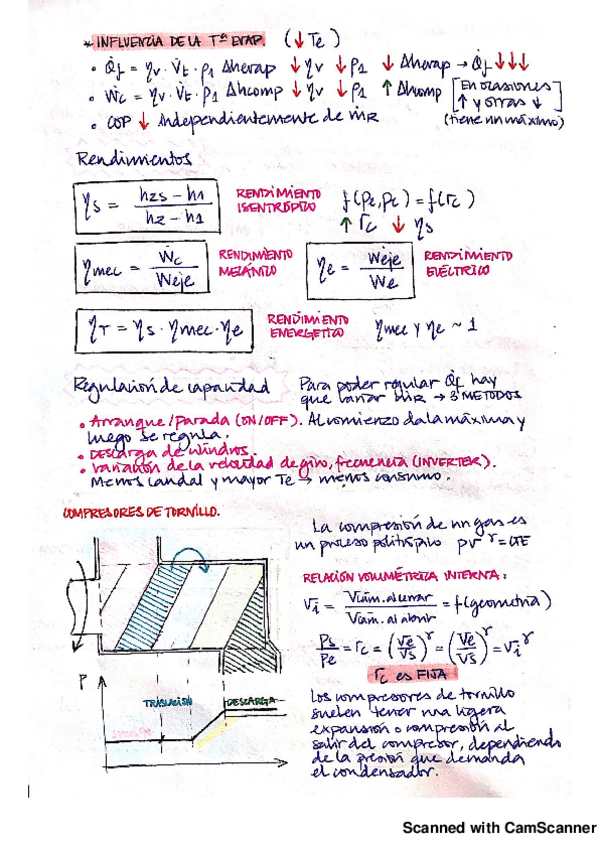 * INFLUENCIA DE LA Tª EVAP. (↓Te)
• Q̇f = ηv · V̇t · ρ1 Δhevap ↓ηv ↓ρ1 ↓Δhevap → Q̇f ↓↓↓
• Ẇc = ηv · V̇t · ρ1 Δhcomp ↓ηv ↓ρ1 ↑Δhcomp [En ocasiones ↑ y otras ↓]
(tiene un máximo)
• COP ↓ independientemente de ṁR
Rendimientos
ηs = (h2s - h1) / (h2 - h1) RENDIMIENTO ISENTRÓPICO f(pe, pc) = f(rc)
↑rc ↓ηs
ηmec = Ẇc / Ẇeje RENDIMIENTO MECÁNICO ηe = Ẇeje / We RENDIMIENTO ELÉCTRICO
ηT = ηs · ηmec · ηe RENDIMIENTO ENERGETICO ηmec y ηe ~ 1
Regulación de capacidad Para poder regular Q̇f hay
que variar ṁR → 3 METODOS
• Arranque/Parada (ON/OFF). Al comienzo da la máxima y
luego se regula.
• DESCARGA de cilindros.
• Variación de la velocidad de giro, frecuencia (INVERTER).
Menos caudal y mayor Te → menos consumo.
COMPRESORES DE TORNILLO.
La compresión de un gas es
un proceso politrópico pv^γ = CTE
RELACIÓN VOLUMÉTRICA INTERNA:
Vi = Vcám. al cerrar / Vcám. al abrir = f(geometría)
Ps/Pe = rc = (ve/vs)^γ = (Ve/Vs)^γ = vi^γ
rc es FIJA
P
TRASLACIÓN
DESCARGA
Los compresores de tornillo
suelen tener una ligera
expansión o compresión al
salir del compresor, dependiendo
de la presión que demanda
el condensador.
Scanned with CamScanner